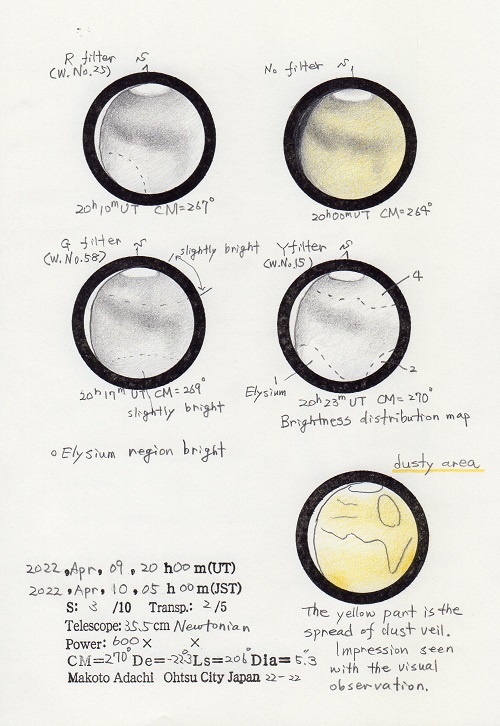 R filter
(W.No.25)
S
20h10mUT CM=267°
No filter
S
20h00mUT CM=264°
G filter
(W.No.58)
S
slightly bright
20h17mUT CM=269°
slightly bright
Y filter
(W.No.15)
S
4
2
Elysium
20h23mUT CM=270°
Brightness distribution map
o Elysium region bright
dusty area
2022, Apr, 09, 20 h00 m(UT)
2022, Apr, 10, 05 h00 m(JST)
S: 3 /10 Transp.: 2 /5
Telescope: 35.5 cm Newtonian
Power: 600 × ×
CM=270° De=-22.3 Ls=206° Dia= 5".3
Makoto Adachi Ohtsu City Japan 22-22
The yellow part is the
spread of dust veil.
Impression seen
with the visual
observation.